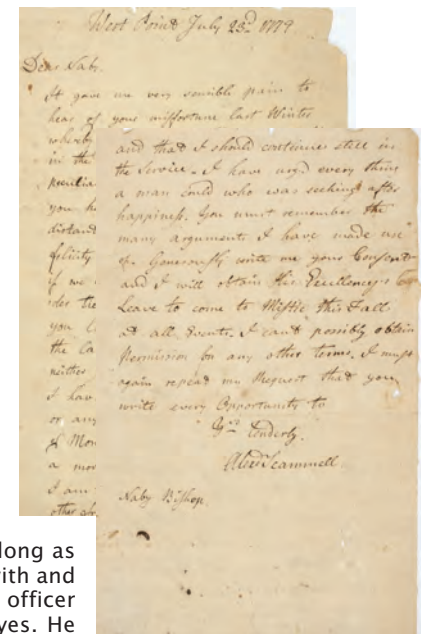 West Point July 23d 1779
Dear Naby
It gave me very sensible pain to
hear of your misfortune last Winter
whereby
in the
peculia
you h
distan
felicity
if we
der the
you
the Ca
neither
I hav
or any
of Mon
a mor
I am
other
and that I should continue still in
the Service. I have urg'd every thing
a man could who was seeking after
happiness. You must remember the
many arguments I have made use
of. Generously write me your Consent
and I will obtain His Excellency's
Leave to come to Mistic this Fall
at all Events. I can't possibly obtain
Permission on any other terms. I must
again repeat my Request that you
write every Opportunity to
Yrs. tenderly.
Alexr Scammell.
Naby Bishop.
long as
with and
officer
yes. He